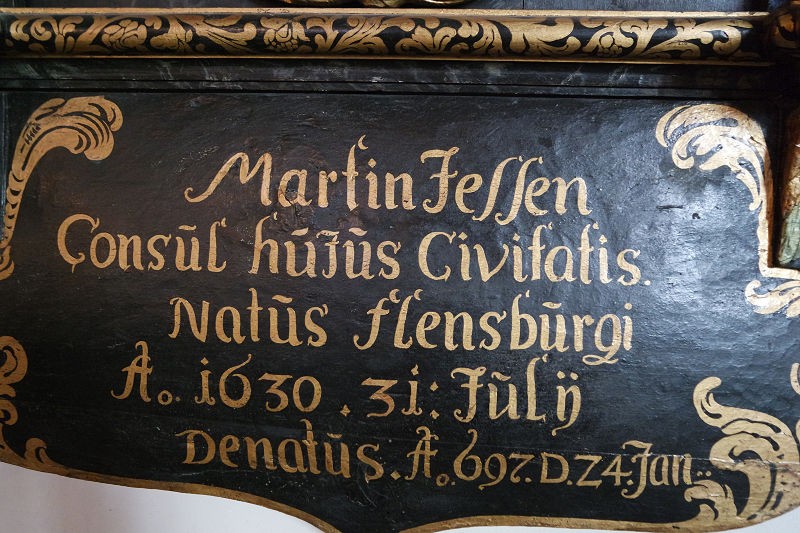 Martin Jessen
Consūl hūJūs Civitatis.
Natūs flensbūrgi
Ao. 1630. 31: Jūlÿ
Denatūs. Ao. 697. D. 24. Jan.